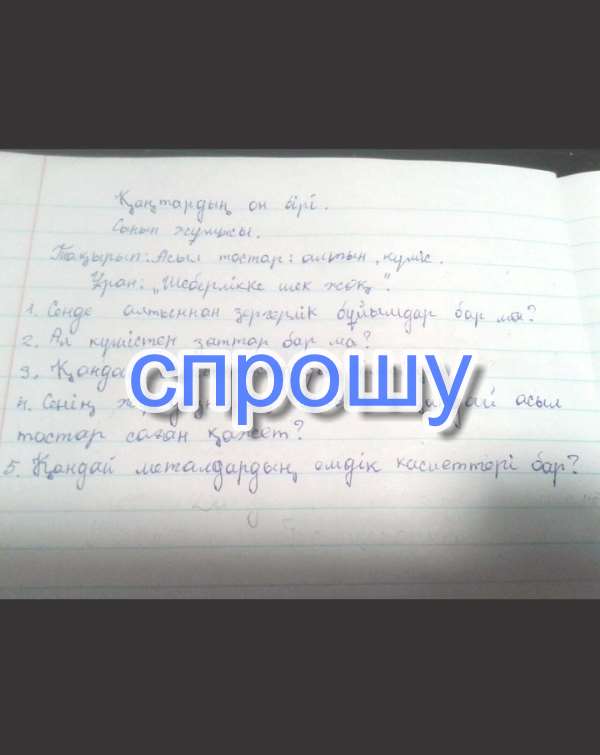 Қаңтардың он бірі.
Сынып жұмысы.
Тақырып: Асыл тастар: алтын, күміс.
Ұран: „Шеберлікке шек жоқ".
1. Сенде алтыннан зергерлік бұйымдар бар ма?
2. Ал күмістен заттар бар ма?
3. Қанда
спрошу
4. Сенің ай асыл
тастар саған қажет?
5. Қандай металдардың емдік касиеттері бар?